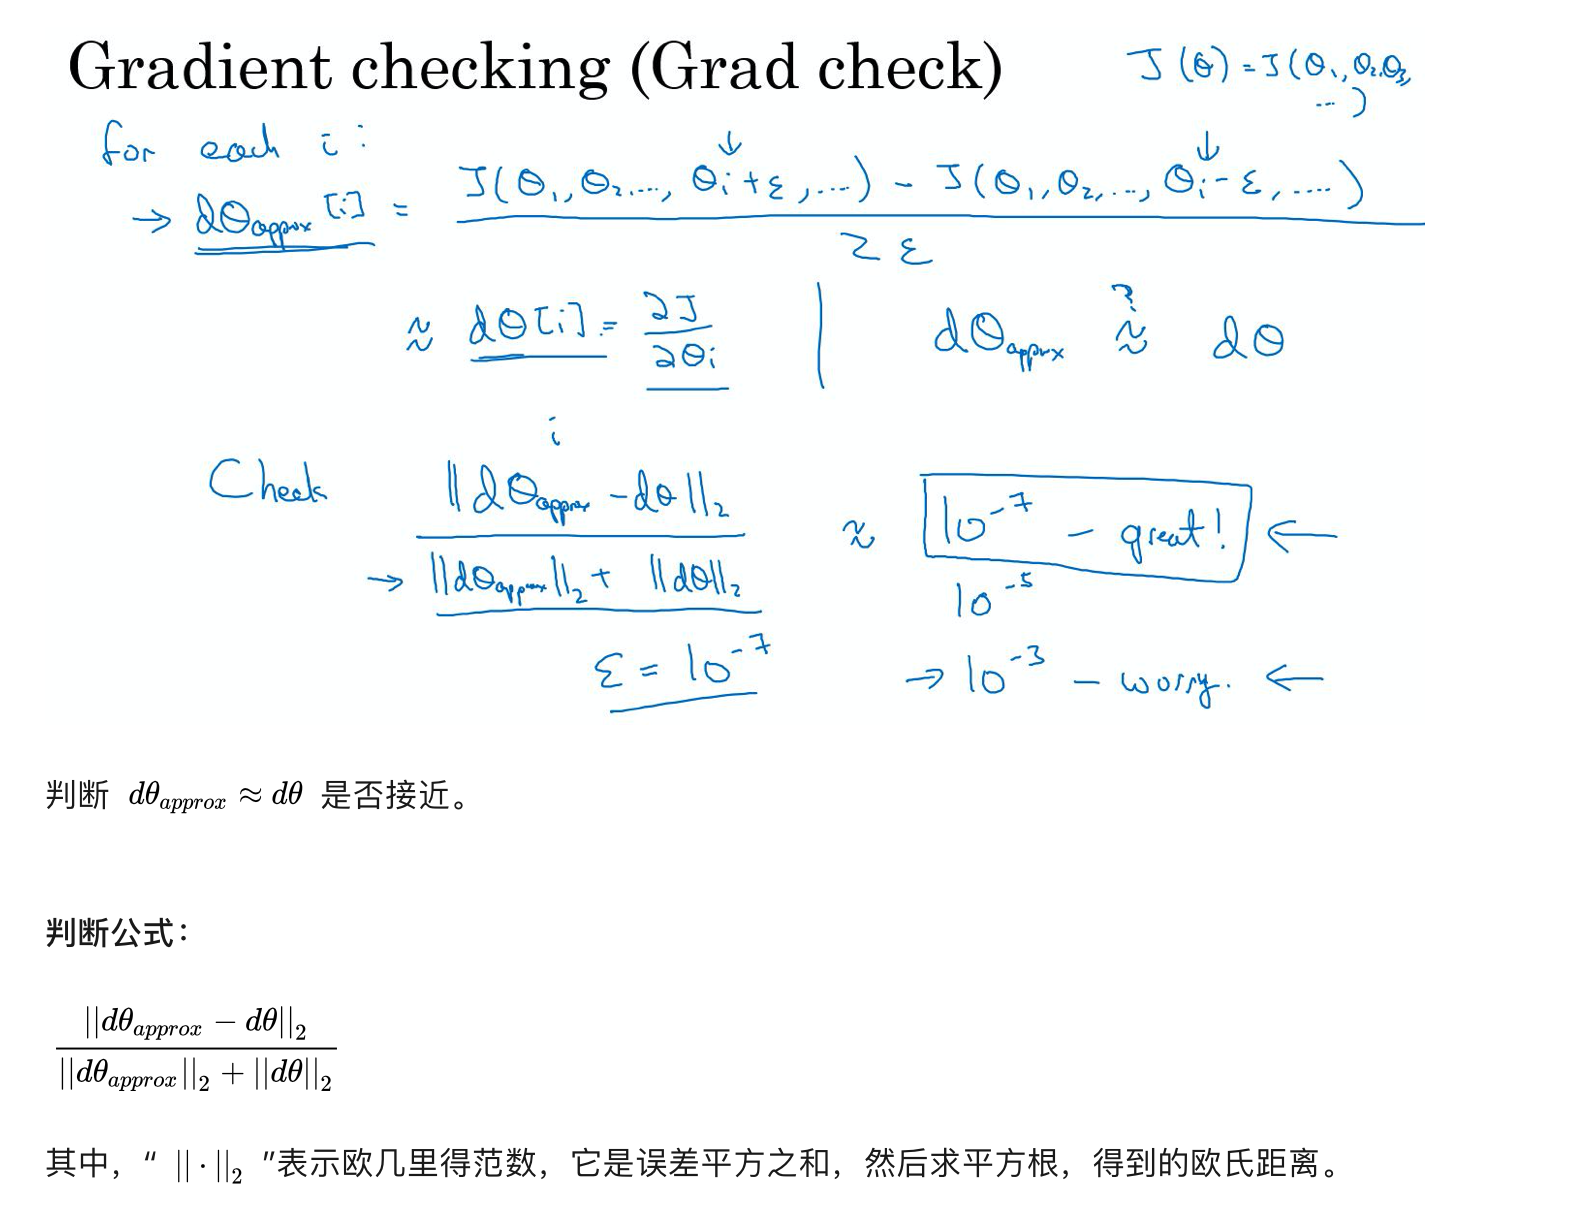 Gradient checking (Grad check)
J(θ) = J(θ₁, θ₂, θ₃, ...)
for each i:
→ dθapprox[i] = (J(θ₁, θ₂, ..., θᵢ+ε, ...) - J(θ₁, θ₂, ..., θᵢ-ε, ....)) / 2ε
≈ dθ[i] = ∂J/∂θᵢ | dθapprox ≈? dθ
i
Check ||dθapprox - dθ||₂ / (||dθapprox||₂ + ||dθ||₂) ≈ 10⁻⁷ - great! ←
10⁻⁵
ε = 10⁻⁷ → 10⁻³ - worry. ←
判断 dθapprox ≈ dθ 是否接近。
判断公式：
||dθapprox − dθ||₂
||dθapprox||₂ + ||dθ||₂
其中，“ ||·||₂ ”表示欧几里得范数，它是误差平方之和，然后求平方根，得到的欧氏距离。